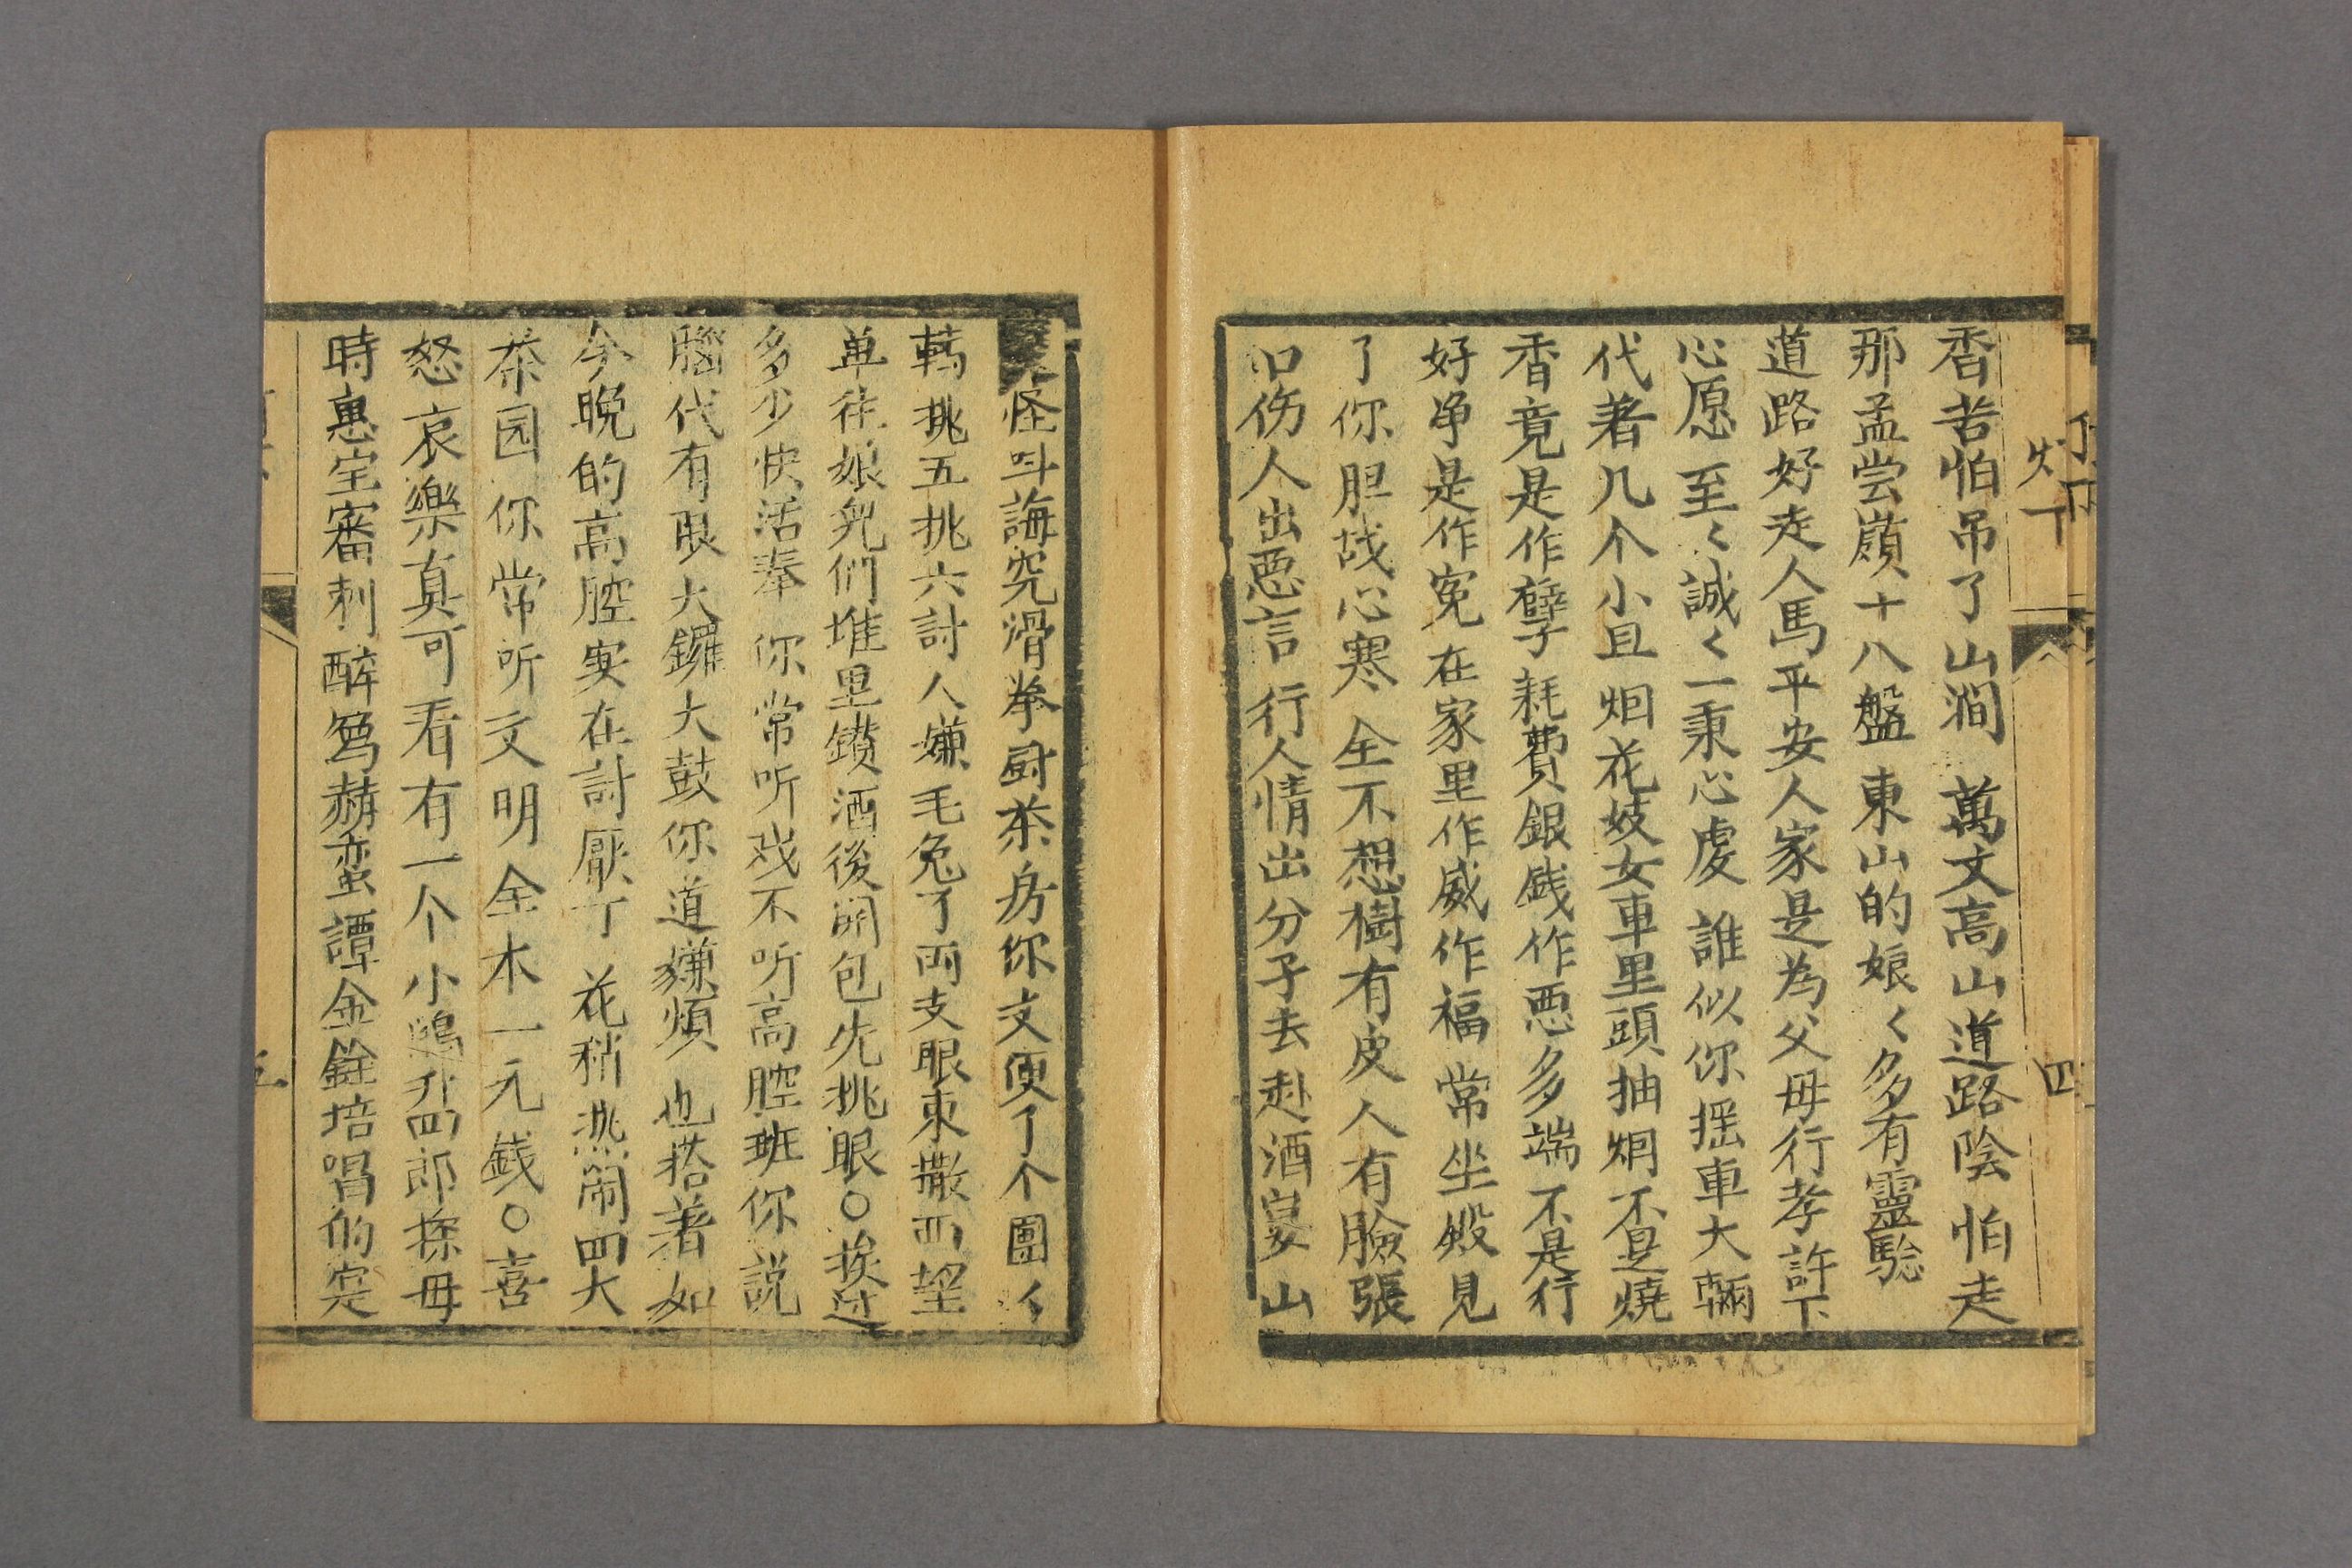 灯下
四
香苦怕吊了山澗萬丈高山道路陰怕走
那孟尝嶺十八盤東山的娘〱多有靈驗
道路好走人馬平安人家是為父母行孝許下
心愿至〱誠〱一秉心虔誰似你揺車大輛
代著几个小且烟花妓女車里頭抽烟不是燒
香竟是作孽耗費銀銭作恶多端不是行
好净是作冤在家里作威作福常坐殿見
了你胆战心寒全不想樹有皮人有臉張
口伤人出恶言行人情出分子去赴酒宴山
怪呌誨究滑拳厨茶房你文便了个圑〱
鞽挑五挑六討人嫌毛兔了両支眼東撒西望
单往娘兒們堆里鑚酒後開包先挑眼〇挨过
多少快活奉你常听戏不听高腔班你説
腦代有限大鑼大鼓你道嫌煩也搭著如
今晚的高腔实在討厭了花稍热闹四大
茶园你常听文明全木一元銭〇喜
怒哀樂真可看有一个小鴻升四郎探母
時惠宝審刺醉写赫蛮譚金銓培唱的完
五